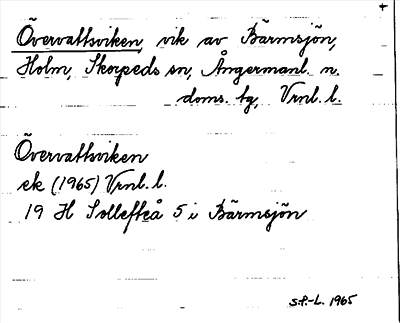 +
Övervattsviken, vik av Bärmsjön,
Holm, Skorpeds sn, Ångermanl. n.
doms. tg, Vrnl. l.
Övervattsviken
ek (1965) Vrnl. l.
19 H Sollefteå 5 i Bärmsjön
S.P.-L. 1965